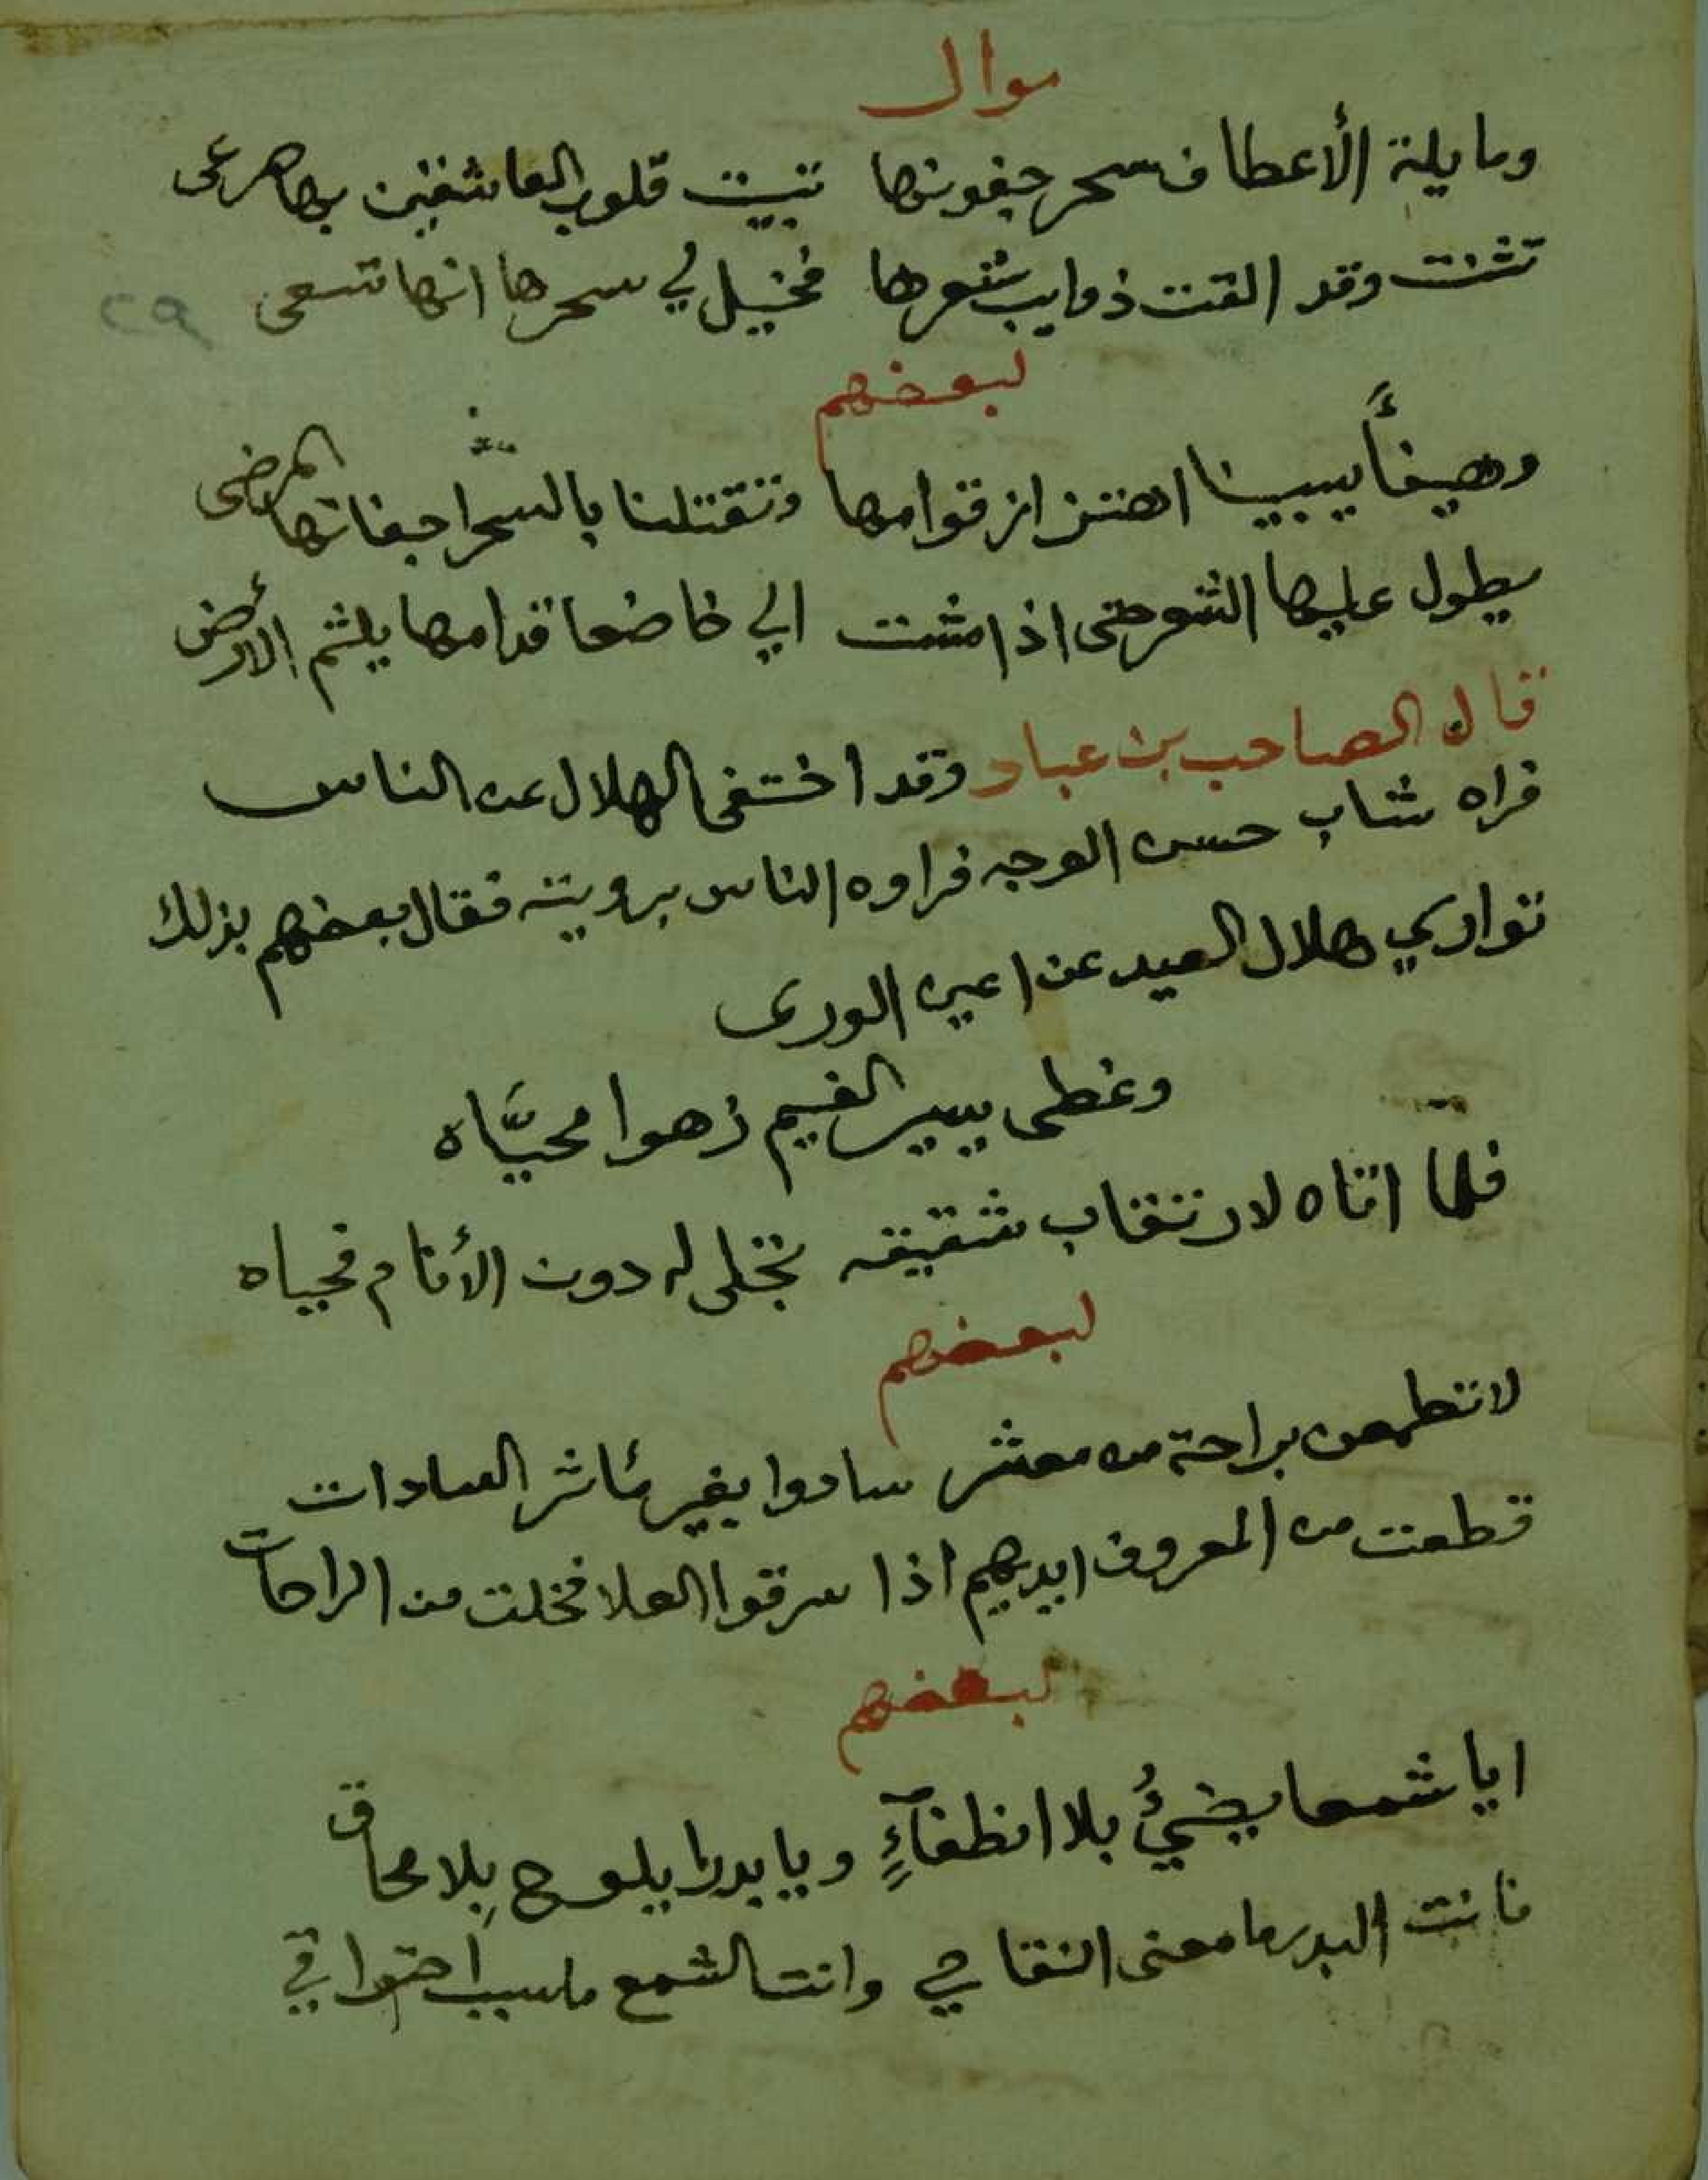 موال
ومايلة الأعطاف سحر جفونها تبيت قلوب العاشقين بها صرعى
تثنت وقد القت ذوايب شعرها فخيل لي سحرها انها تسعى
٢٩
لبعضهم
وهيفأ يسبينا اهتزاز قوامها وتقتلنا بالسحر اجفانها المرضى
يطول عليها الشعر حتى اذا مشت اتي خاضعا قدامها يلثم الأرض
قال الصاحب بن عباد وقد اختفى الهلال عن الناس
فراه شاب حسن الوجه فراوه الناس برويته فقال بعضهم بذلك
تواري هلال العيد عن اعين الورى
وغطى بستر الغيم زهوا محيّاه
فلما اتاه لارتقاب شقيقه تجلى له دون الأنام فحياه
لبعضهم
لا تطمعن براحة من معشر سادوا بغير مئاثر السادات
قطعت من المعروف ايديهم اذا سرقوا العلا فخلت من الراحات
لبعضهم
ايا شمعا يضيُ بلا انطفآءٍ ويا بدرا يلوح بِلا محاق
فانت البدر ما معنى انتقاصي وانت الشمع ما سبب احتراقي